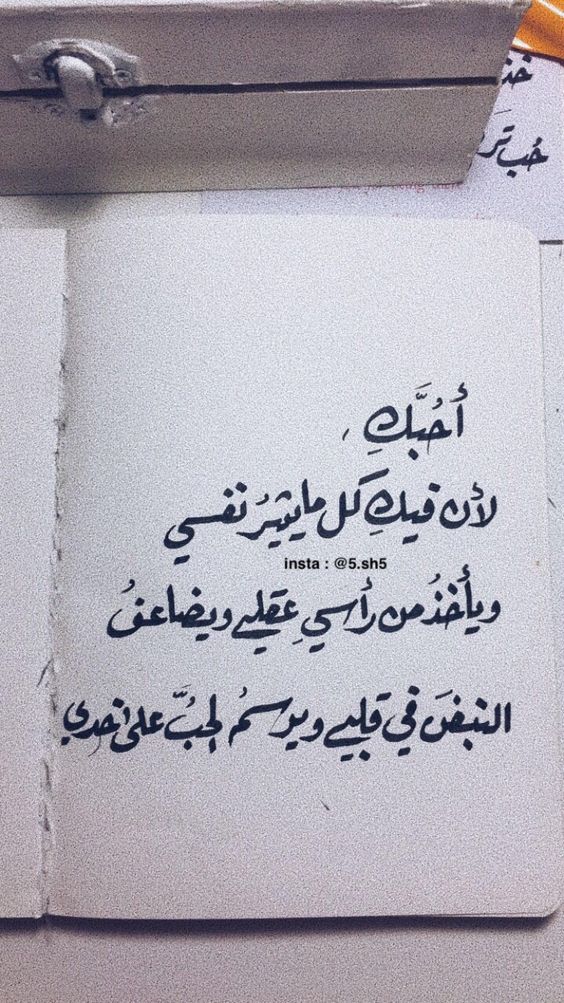 حُب تر
أُحُبَّكِ ،
لأن فيكِ كل ما يثيرُ نفسي
insta : @5.sh5
ويأخذُ من رأسي عقلي ويضاعفُ
النبضَ في قلبي ويرسمُ الحُبَّ على خدي